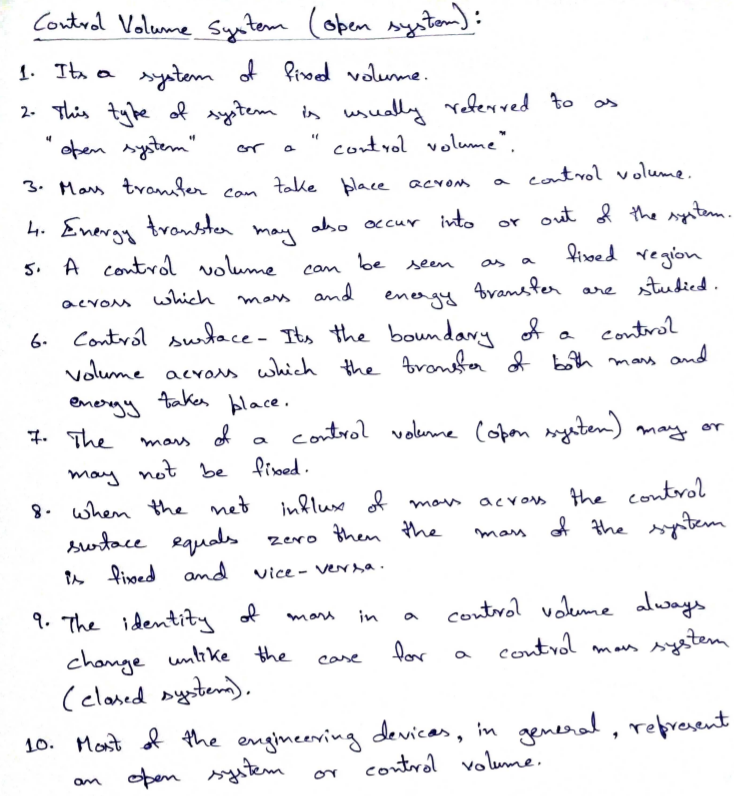 Control Volume System (open system):
1. Its a system of fixed volume.
2. This type of system is usually referred to as
"open system" or a "control volume".
3. Mass transfer can take place across a control volume.
4. Energy transfer may also occur into or out of the system.
5. A control volume can be seen as a fixed region
across which mass and energy transfer are studied.
6. Control surface - Its the boundary of a control
volume across which the transfer of both mass and
energy takes place.
7. The mass of a control volume (open system) may or
may not be fixed.
8. when the net influx of mass across the control
surface equals zero then the mass of the system
is fixed and vice-versa.
9. The identity of mass in a control volume always
change unlike the case for a control mass system
(closed system).
10. Most of the engineering devices, in general, represent
an open system or control volume.